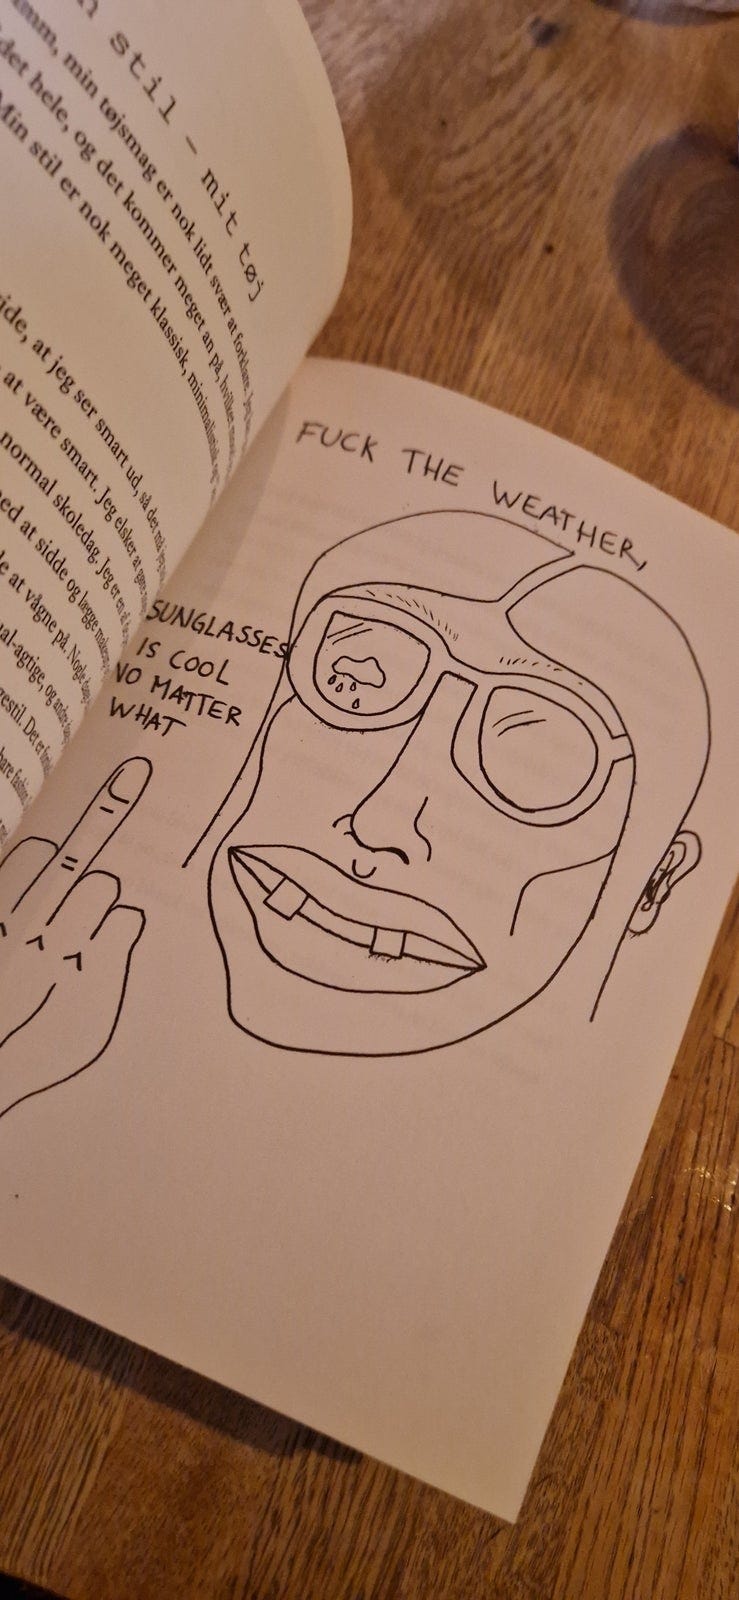 n stil - mit tøj
mm, min tøjsmag er nok lidt svær at forklare.
det hele, og det kommer meget an på, hvilket
Min stil er nok meget klassisk, minimalistisk
ide, at jeg ser smart ud, så det må
at være smart. Jeg elsker at
normal skoledag. Jeg er en af
ed at sidde og lægge
e at vågne på. Nogle
ual-agtige, og
restil. Det er
bare
FUCK THE WEATHER,
SUNGLASSES
IS COOL
NO MATTER
WHAT